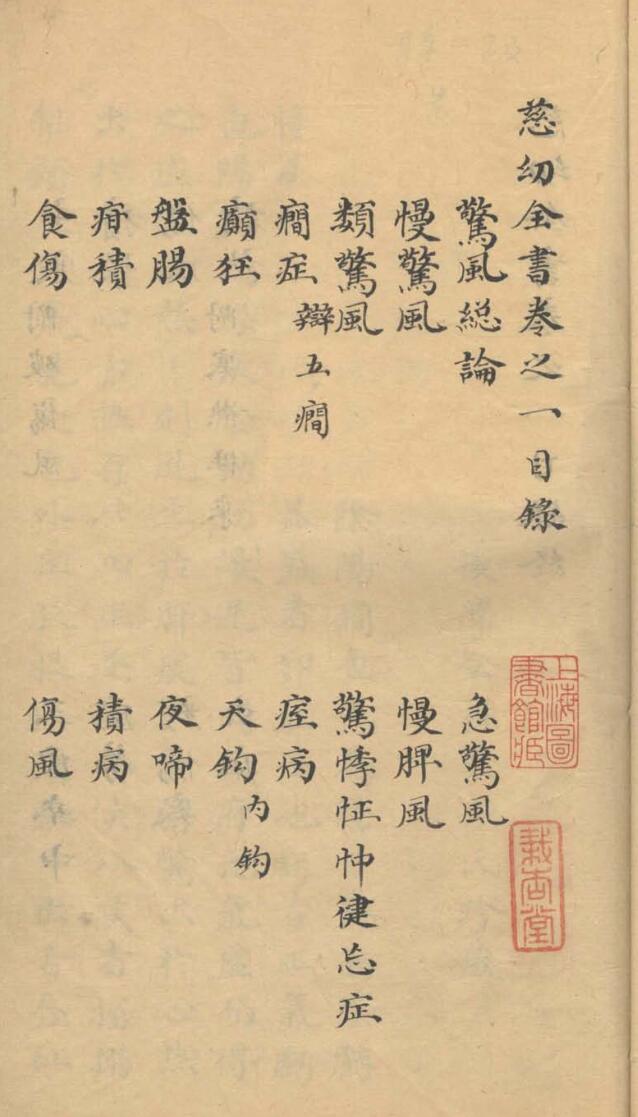 慈幼全書卷之一目錄
驚風総論
急驚風
慢驚風
慢脾風
類驚風
驚悸怔忡健忘症
癇症 辯五癇
痓病
癲狂
天鈎 內鈎
盤腸
夜啼
疳積
積病
食傷
傷風
上海圖書館藏
栽杏堂